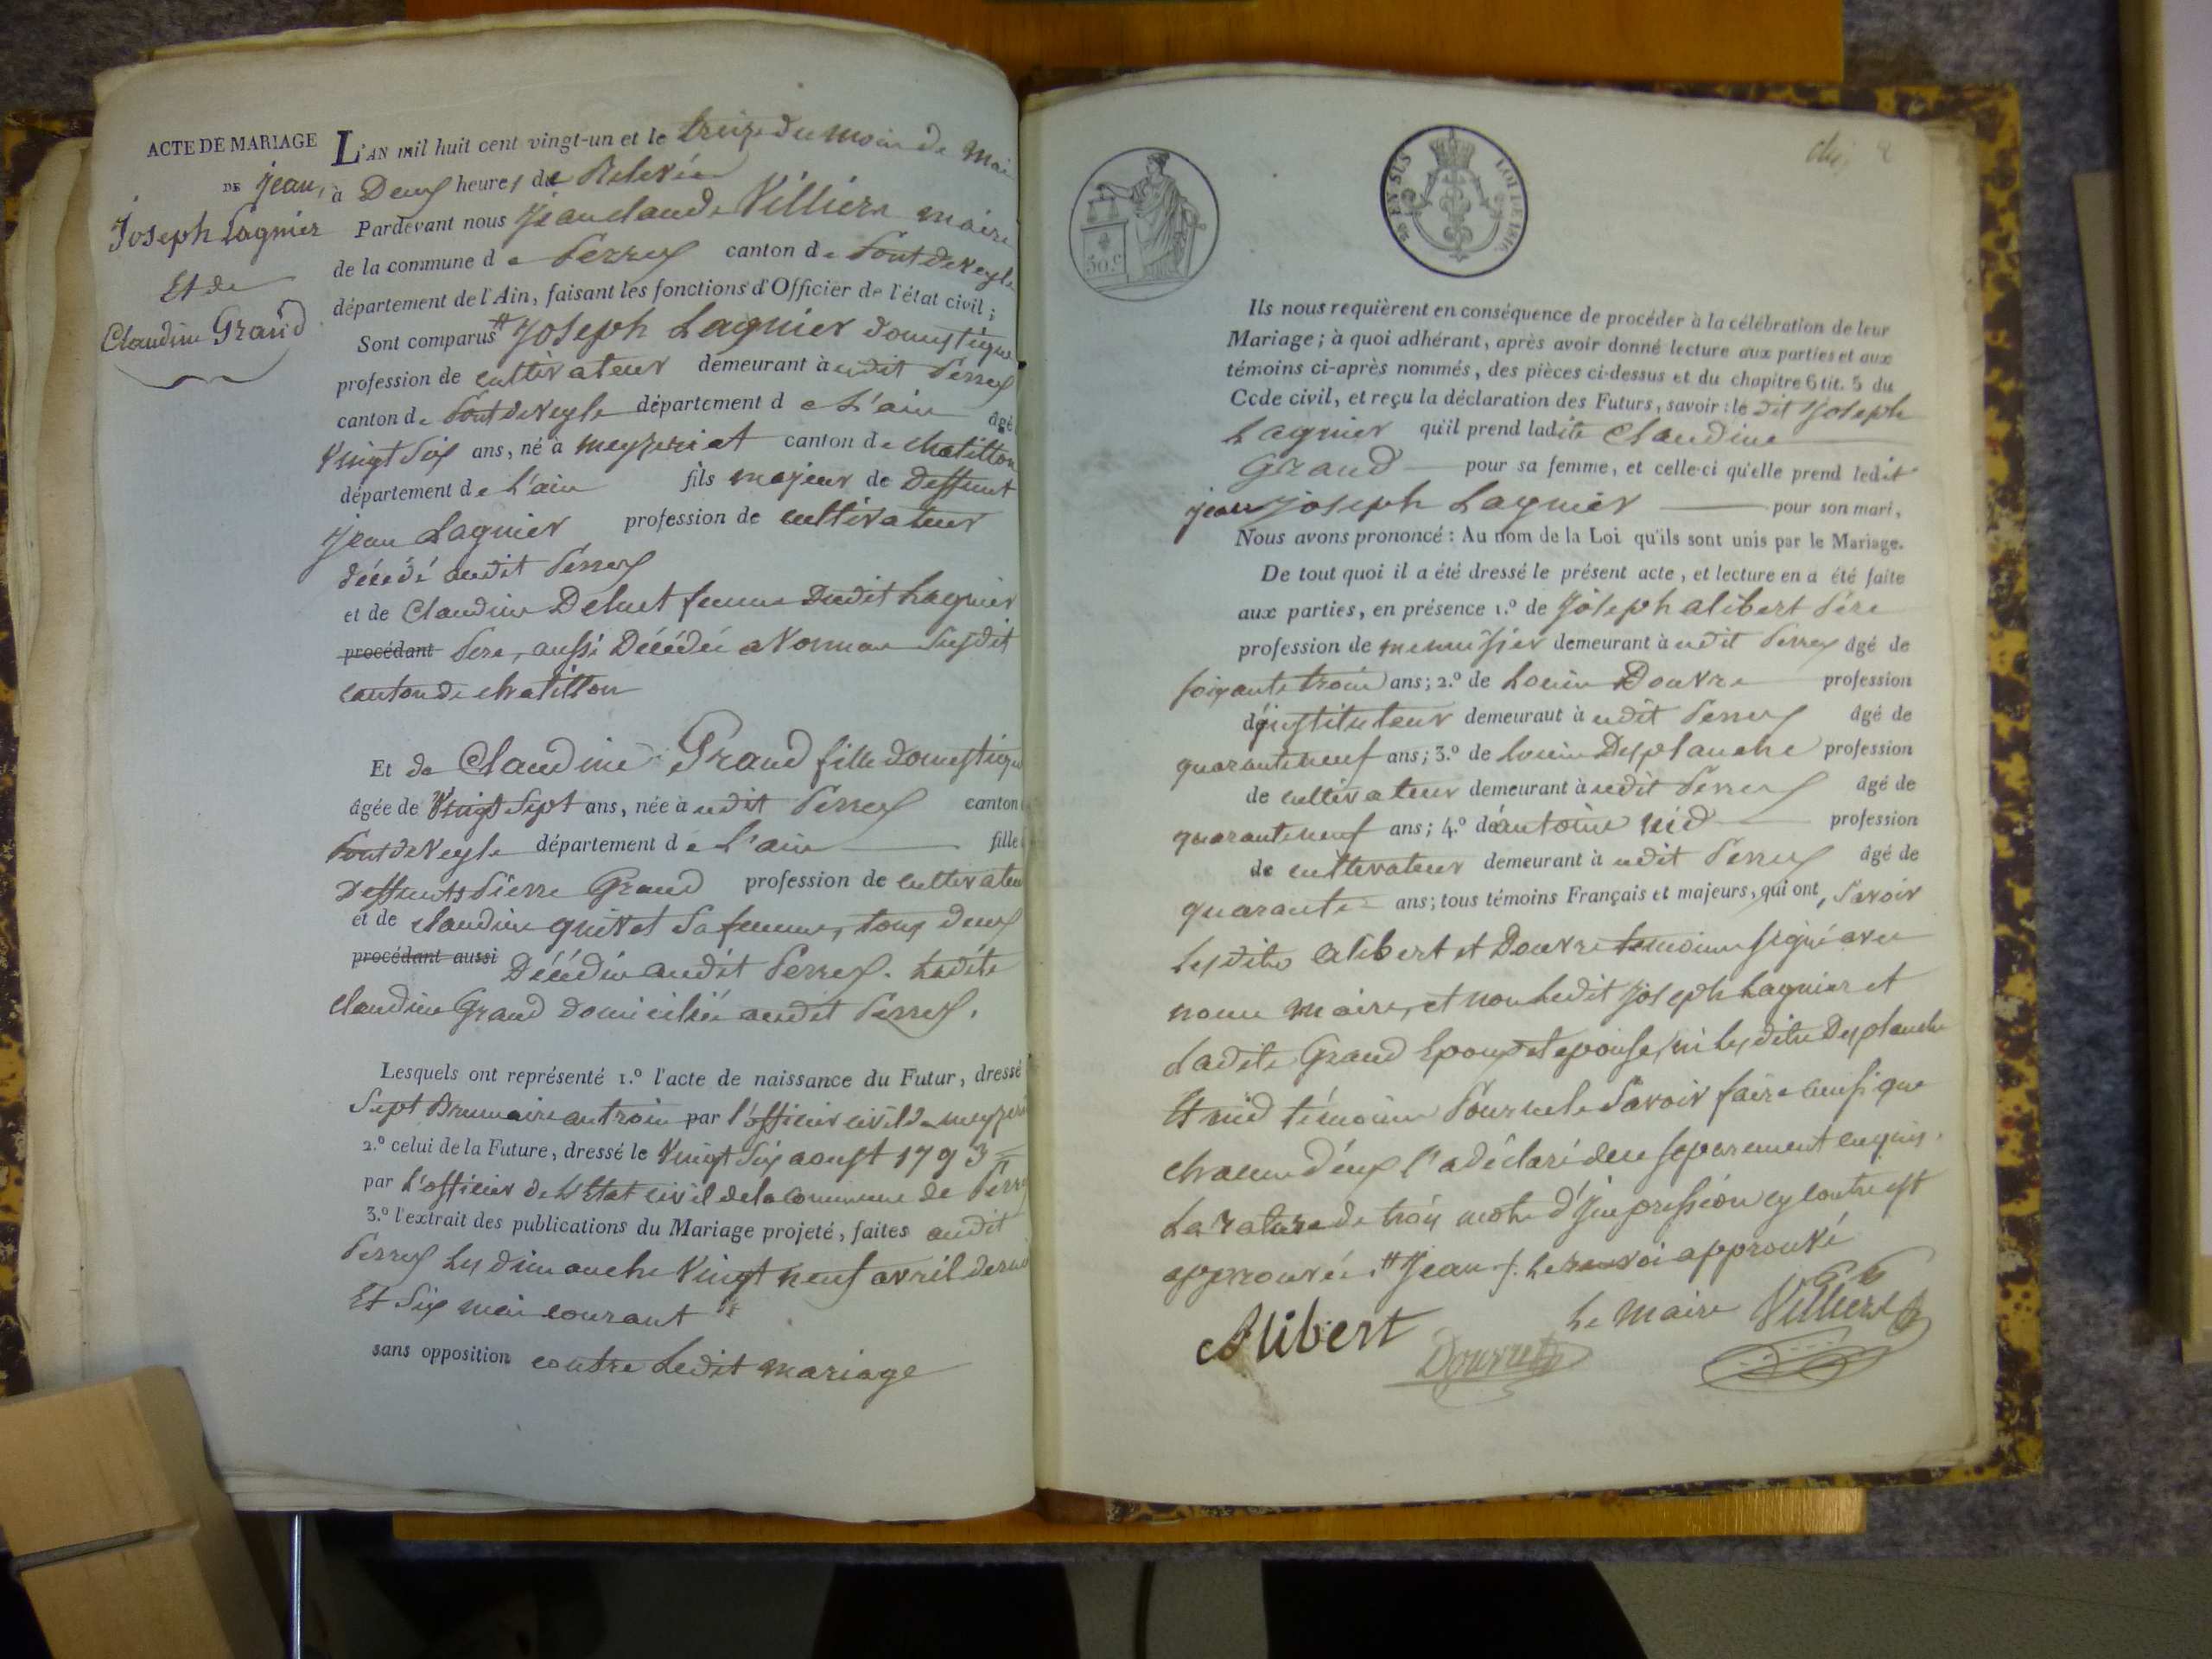 ACTE DE MARIAGE
DE jean,
Joseph Lagnier
Et de
Claudine Grand
L'AN mil huit cent vingt-un et le treize du mois de Mai
à Deux heures de Relevée
Pardevant nous jean claude Villiers maire
de la commune de Perrex canton de Pont de Veyle
département de l'Ain, faisant les fonctions d'Officier de l'état civil ;
Sont comparus # Joseph Lagnier domestique
profession de cultivateur demeurant à udit Perrex
canton de Pont de Veyle département de L'ain âgé
Vingt Six ans, né à meyzeriat canton de chatillon
département de L'ain fils majeur de Deffunt
Jean Lagnier profession de cultivateur
décédé audit Perrex
et de Claudine Deluet femme Dudit Lagnier
procédant Pere, aussi Décédée a Vonnas Susdit
canton de chatillon
Et de Claudine Grand fille domestique
âgée de Vingt Sept ans, née à udit Perrex canton
Pont de Veyle département de L'ain fille
Deffunts Pierre Grand profession de cultivateur
et de claudine quivet Sa femme, tous deux
procédant aussi Décédés audit Perrex. Ladite
claudine Grand domiciliée audit Perrex.
Lesquels ont représenté 1.º l'acte de naissance du Futur, dressé
Sept Brumaire an trois par l'officier civil de meyzeriat
2.º celui de la Future, dressé le Vingt Six aoust 1793
par L'officier de L'Etat civil de la Commune de Perrex
3.º l'extrait des publications du Mariage projeté, faites audit
Perrex Les dimanche Vingt neuf avril dernier
Et Six mai courant
sans opposition contre Ledit mariage
50.c
EN SUS
LOI DE 1816
Ils nous requièrent en conséquence de procéder à la célébration de leur
Mariage ; à quoi adhérant, après avoir donné lecture aux parties et aux
témoins ci-après nommés, des pièces ci-dessus et du chapitre 6 tit. 5 du
Code civil, et reçu la déclaration des Futurs, savoir : le dit Joseph
Lagnier qu'il prend ladite Claudine
Grand pour sa femme, et celle-ci qu'elle prend ledit
jean Joseph Lagnier pour son mari,
Nous avons prononcé : Au nom de la Loi qu'ils sont unis par le Mariage.
De tout quoi il a été dressé le présent acte, et lecture en a été faite
aux parties, en présence 1.º de Joseph alibert Père
profession de menuisier demeurant à udit Perrex âgé de
soixante trois ans ; 2.º de Louis Douvre profession
d'instituteur demeurant à udit Perrex âgé de
quarante neuf ans ; 3.º de louis Desplanche profession
de cultivateur demeurant à udit Perrex âgé de
quarante neuf ans ; 4.º de antoine nid profession
de cultivateur demeurant à udit Perrex âgé de
quarante ans ; tous témoins Français et majeurs, qui ont, Savoir
Lesdits alibert et Douvre temoins signé avec
nous maire, et non Ledit Joseph Lagnier et
Ladite Grand Epoux et epouse, ni Lesdits Desplanche
Et nid témoins Pour ne le Savoir faire ainsi que
chacun d'eux l'a déclaré de ce separement enquis.
La rature de trois mots d'Impression cy contre est
approuvée. # Jean /. Le renvoi approuvé
Alibert
Douvre
Le Maire Villiers